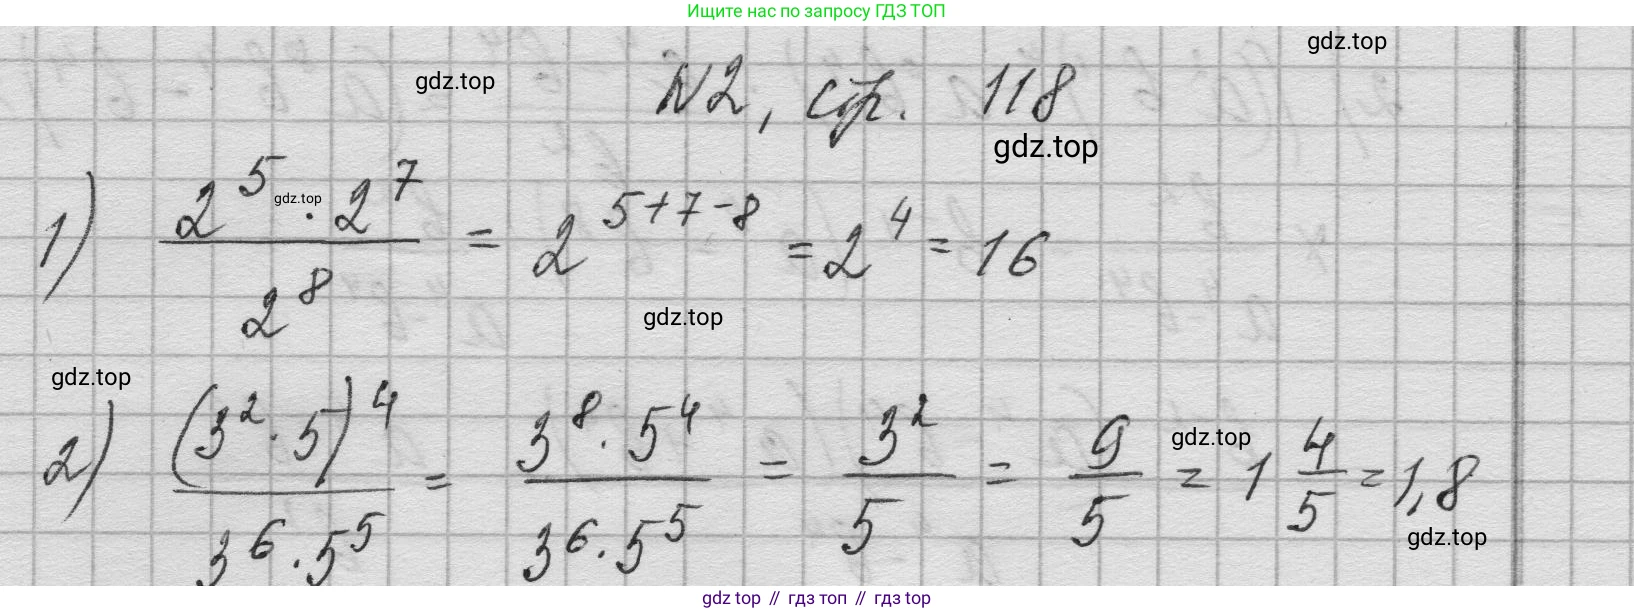 Ищите нас по запросу ГДЗ ТОП
gdz.top
gdz.top
N2, стр. 118
gdz.top
1) (2^5 · 2^7)/(2^8) = 2^(5+7-8) = 2^4 = 16
gdz.top
gdz.top
gdz.top
2) ((3^2 · 5)^4)/(3^6 · 5^5) = (3^8 · 5^4)/(3^6 · 5^5) = 3^2/5 = 9/5 = 1 4/5 = 1,8
gdz.top
gdz.top
gdz top // гдз топ // гдз top